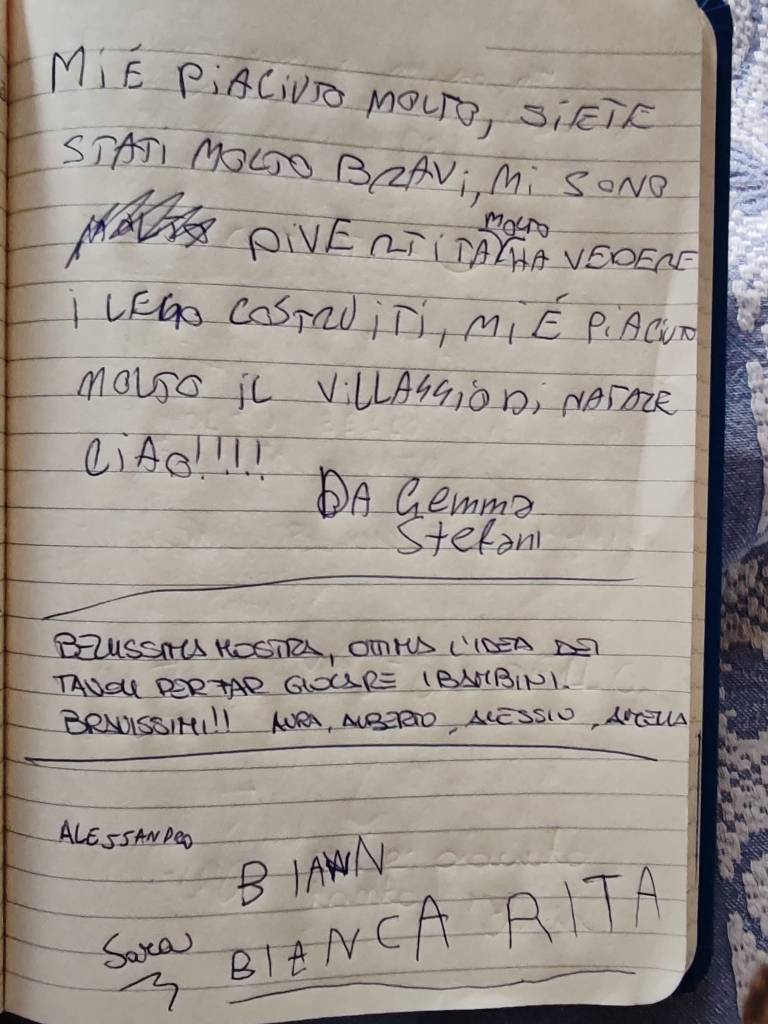 MI É PIACIUTO MOLTO, SIETE
STATI MOLTO BRAVI, MI SONO
DIVERTITA MOLTO HA VEDERE
I LEGO COSTRUITI, MI É PIACIUTO
MOLTO IL VILLAGGIO DI NATALE
CIAO!!!!!
DA Gemma
Stefani
BELLISSIMA MOSTRA, OTTIMA L'IDEA DEI
TAVOLI PER FAR GIOCARE I BAMBINI.
BRAVISSIMI!! ALBERTO, ALESSIO,
ALESSANDRO
BIANN
Sara
BIANCA RITA